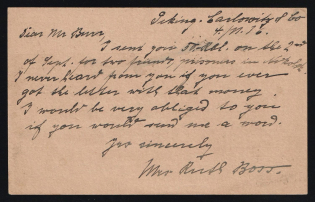 Peking. Carlowitz & Co
4/VI. 16.
Dear Mr Burr,
I sent you on the 2nd
of Sept. for two friends, prisoners in
I never heard from you if you ever
got the letter with that money.
I would be very obliged to you
if you would send me a word.
Yrs sincerely
Mrs Ruth Boss.